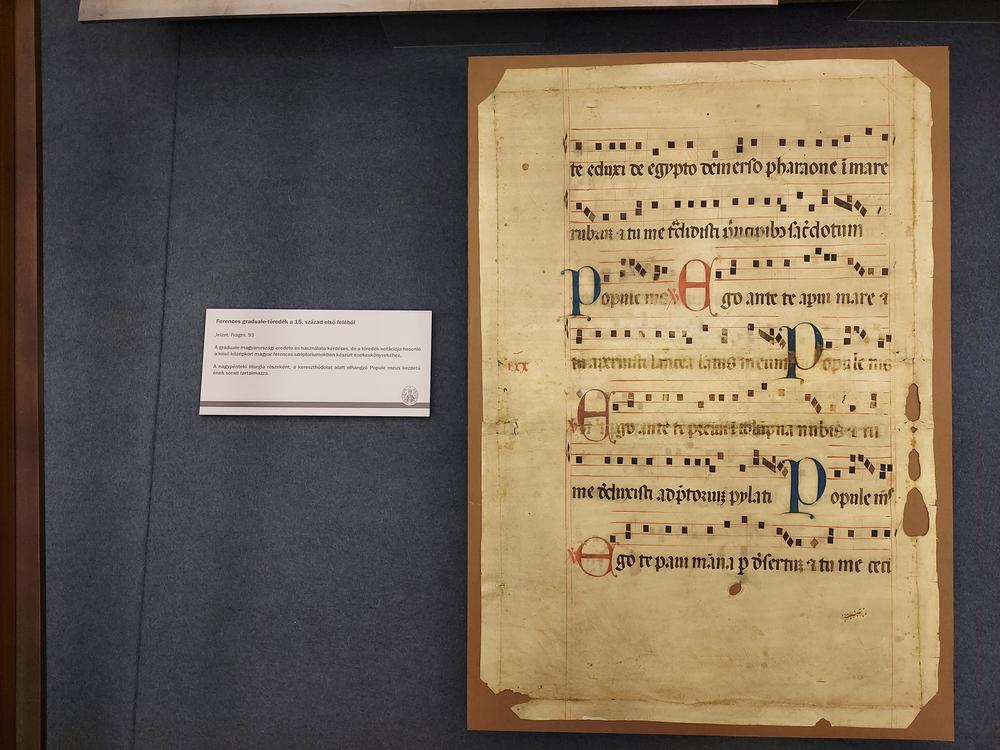 Ferences graduale-töredék a 15. század első feléből
Jelzet: Fragm. 93
A graduale magyarországi eredete és használata kérdéses, de a töredék notációja hasonló
a késő középkori magyar ferences scriptoriumokban készült énekeskönyvekéhez.
A nagypénteki liturgia részeként, a kereszthódolat alatt elhangzó Popule meus kezdetű
ének sorait tartalmazza.
te eduxi de egypto demerso pharaone ī mare
rubrū ⁊ tu me
Popule ms Ego ante te apui mare ⁊
tu aperuisti lancea latus meum Popule ms
Ego ante te ⁊ tu
me pylati Popule ms
Ego te paui māna p dsertū ⁊ tu me ceci